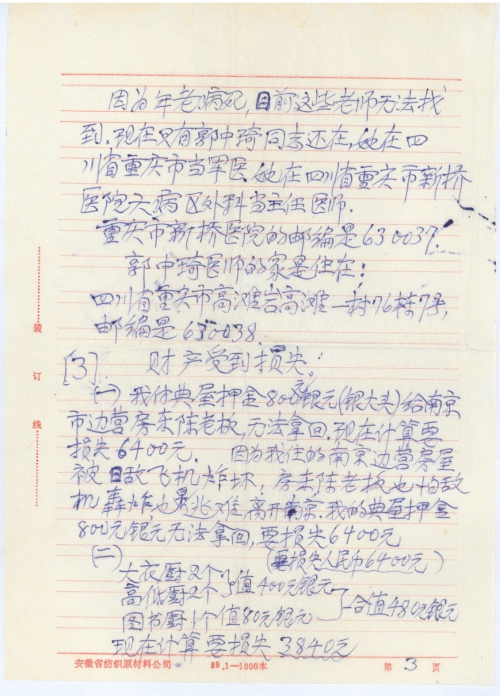 因为年老病死,目前这些老师无法找
到.现在只有郭中琦同志还在,她在四
川省重庆市当军医.她在四川省重庆市新桥
医院六病区外科当主任医师.
重庆市新桥医院的邮编是630037.
郭中琦医师的家是住在:
四川省重庆市高滩岩高滩一村76栋7号,
邮编是630038.
[3]. 财产受到损失.:
(一) 我付典屋押金800元银元(银大头)给南京
市边营房东陈老板,无法拿回.现在计算要
损失6400元. 因为我住的南京边营房屋
被日敌飞机炸坏,房东陈老板也怕敌
机轰炸也逃难,离开南京.我的典屋押金
800元银元无法拿回,要损失6400元
(要损失人民币6400元)
(二)
大衣厨2个
高低厨2个 值400元银元
图书厨1个值80元银元
合值480元银元
现在计算要损失3840元
装
订
线
安徽省纺织原材料公司 89.1—1000本 第 3 页